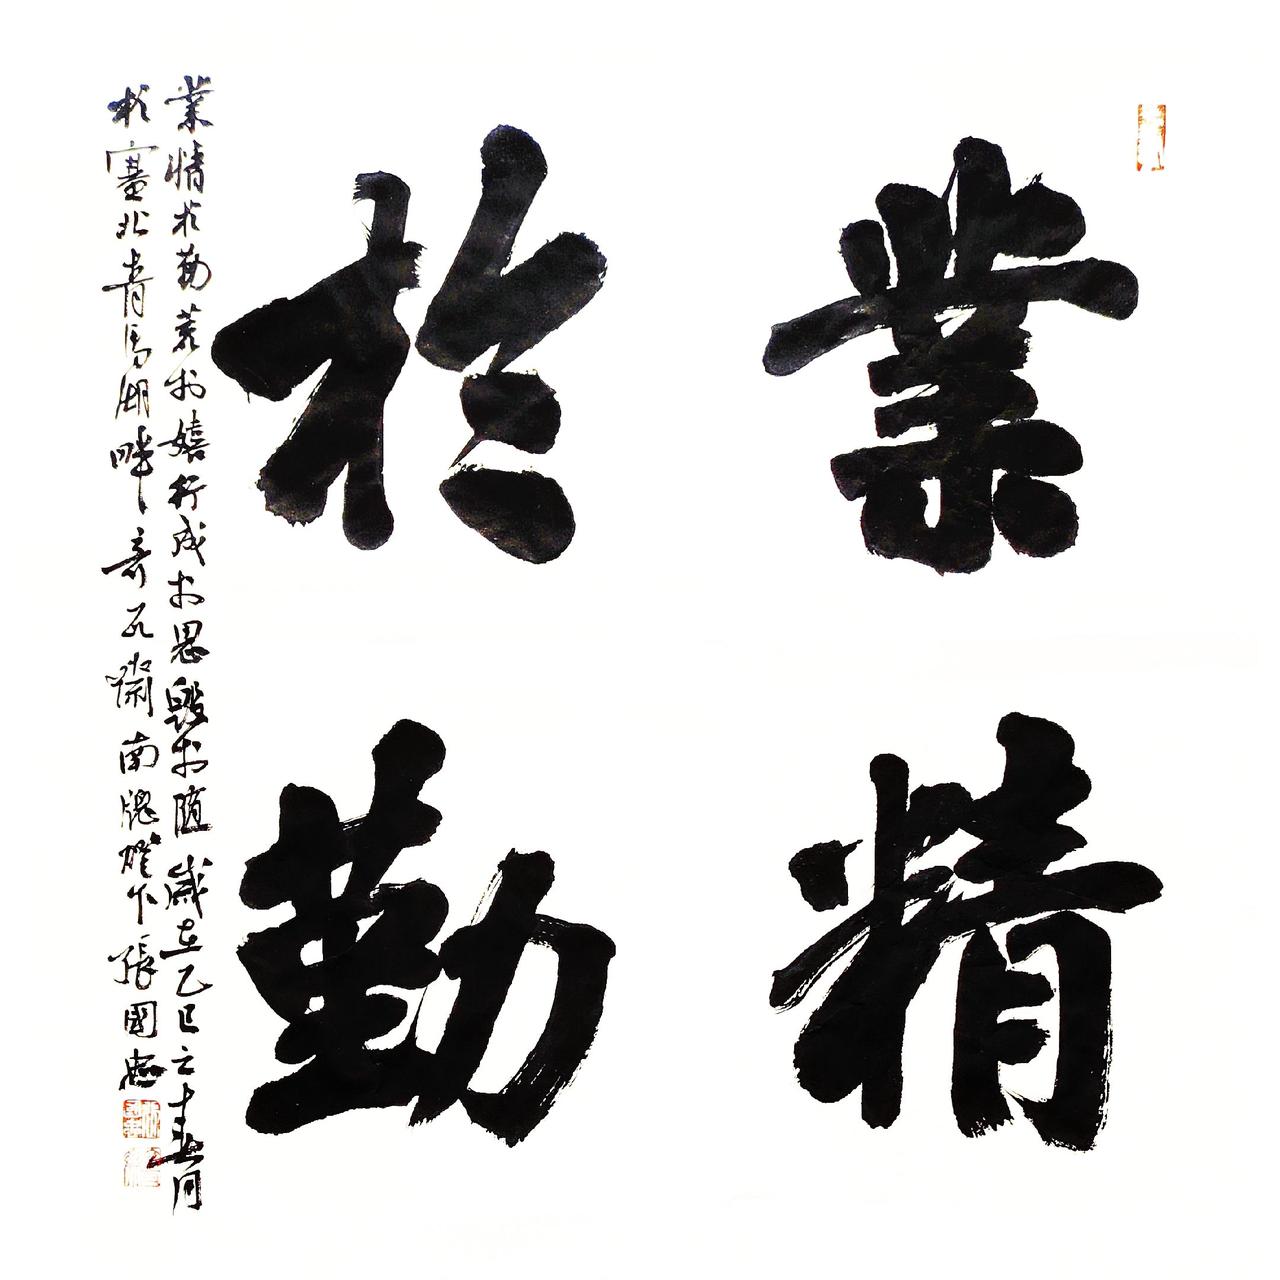 業精
於勤
業精於勤荒於嬉行成於思毀於隨歲在乙巳之春月
於塞北青馬湖畔 南牕燈下張國忠